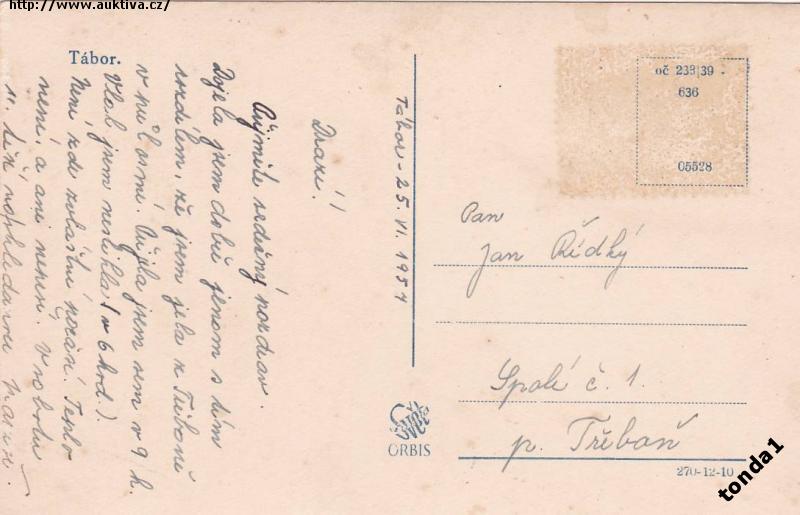 http://www.auktiva.cz/
Tábor.
Tábor - 25. VI. 1954
Drazí!
Přijměte srdečný pozdrav.
Dojela jsem dobře jenom s tím
rozdílem, že jsem jela z Třeboně
v půl osmé. Přijela jsem sem v 9 h.
Vlak jsem nestihla (v 6 hod.)
Není zde zvláštní počasí. Teplo
není, a ani neprší. V sobotu
se těší
oč 238|39 -
636
05528
Pan
Jan Řídký
Spolí č. 1.
p. Třeboň
ORBIS
270-12-10
tonda1